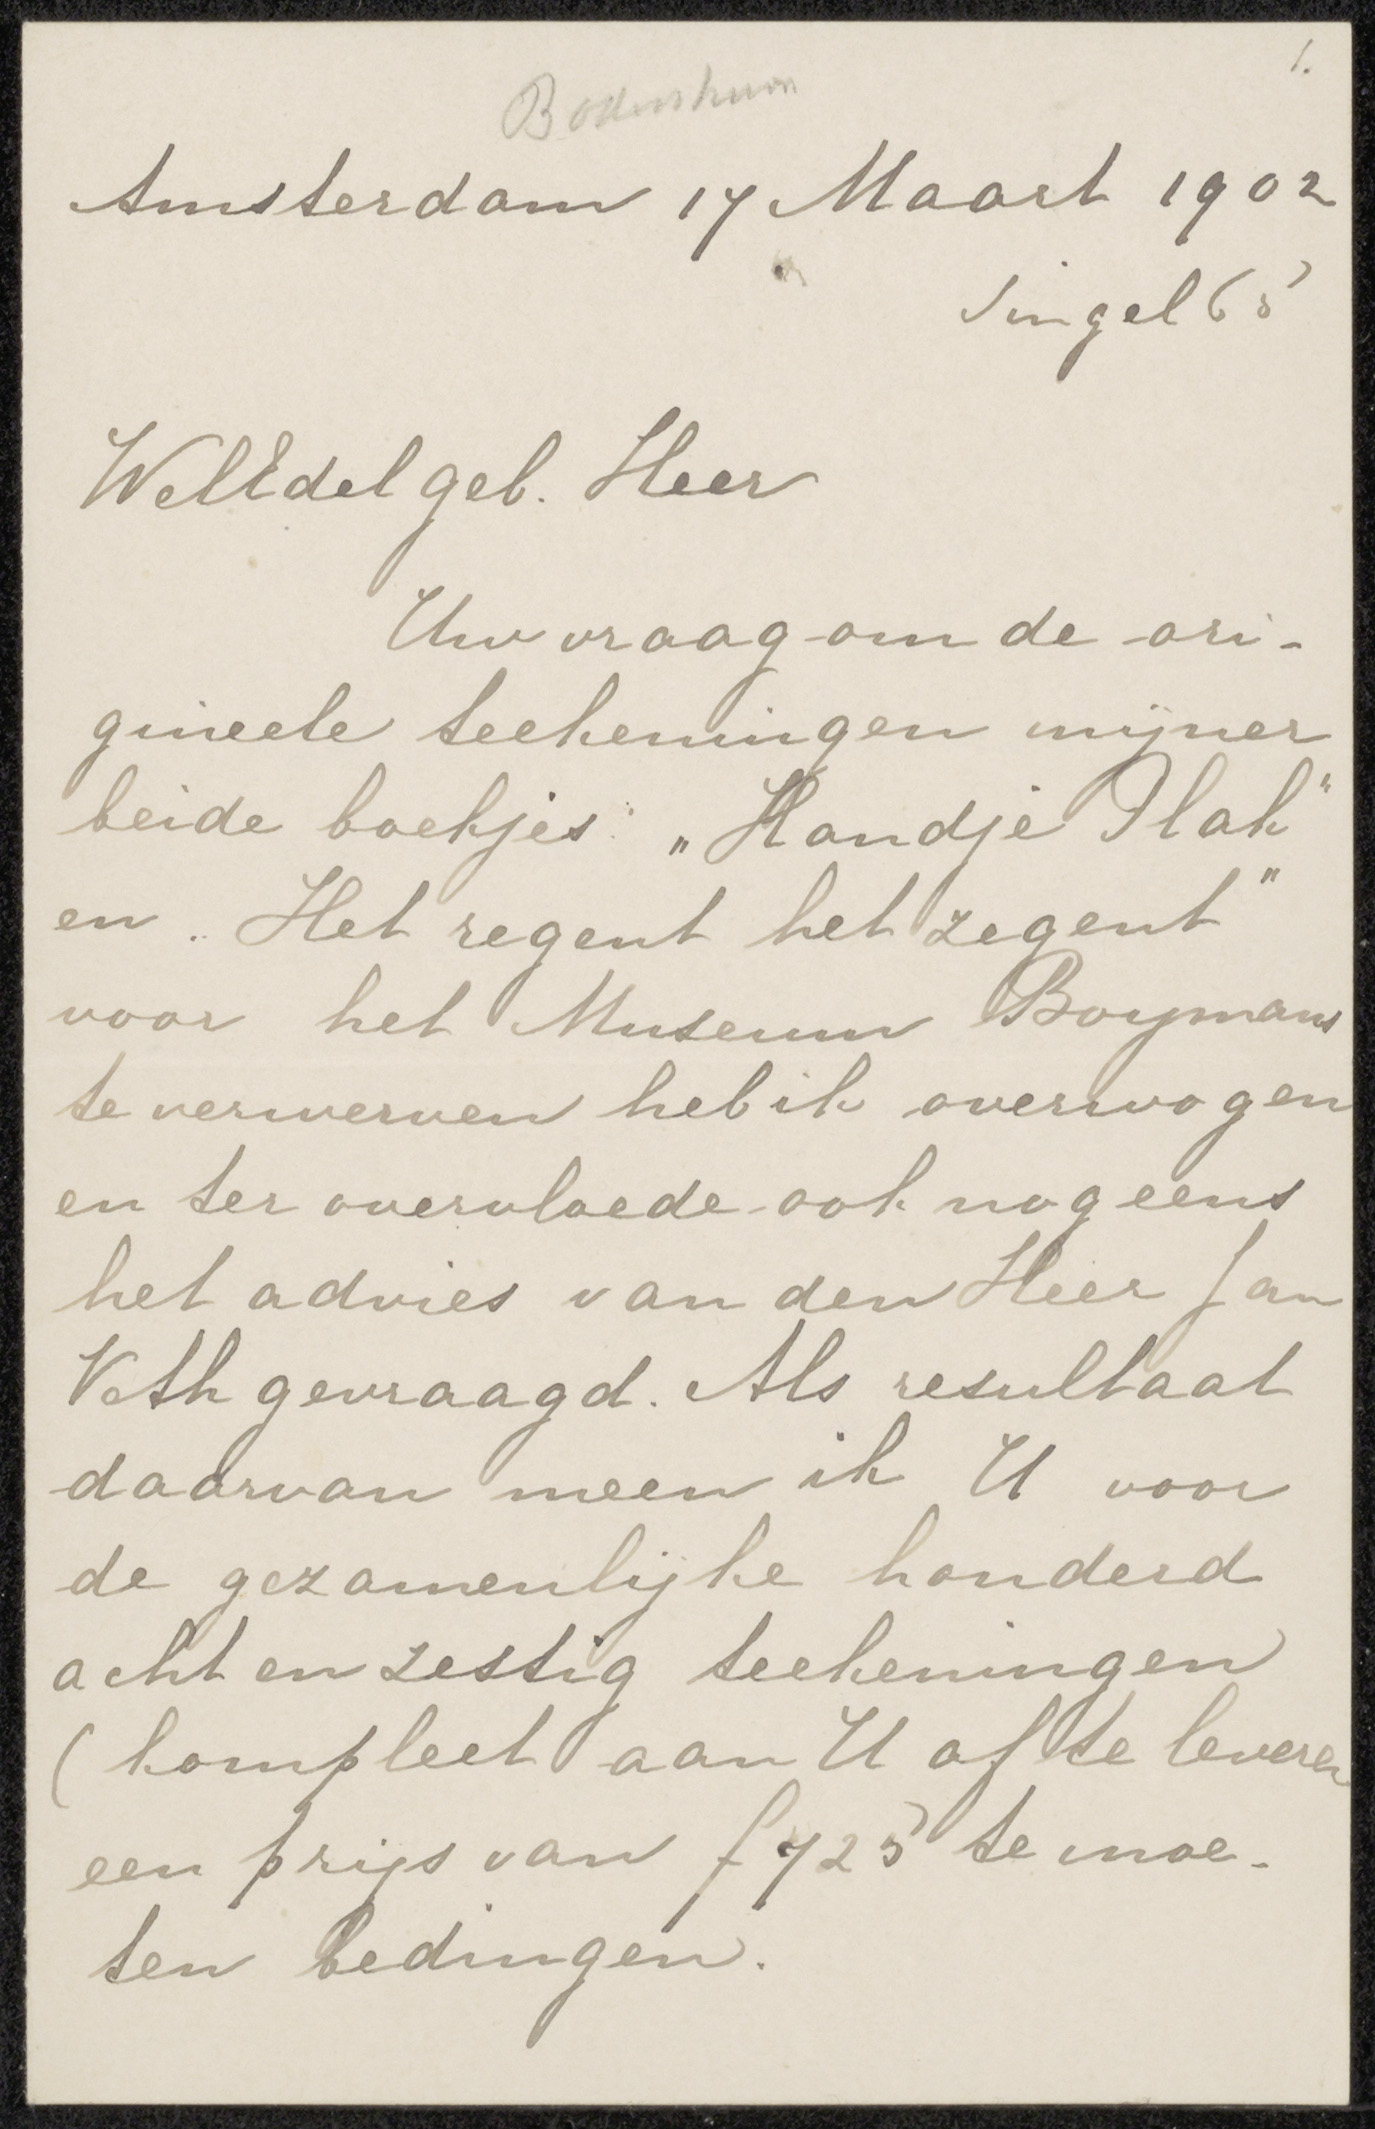 1.
Bodenheim
Amsterdam 17 Maart 1902
Singel 65
WelEdelgeb. Heer
Uw vraag om de ori-
gineele teekeningen mijner
beide boekjes: „Handje Plak"
en „Het regent het zegent"
voor het Museum Boymans
te verwerven heb ik overwogen
en ter overvloede ook nog eens
het advies van den Heer Jan
Veth gevraagd. Als resultaat
daarvan meen ik U voor
de gezamenlijke honderd
acht en zestig teekeningen
(kompleet aan U af te leveren
een prijs van f 725 te moe-
ten bedingen.